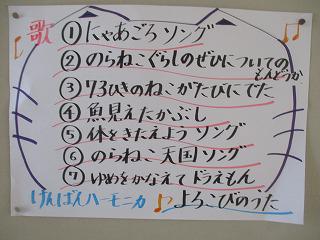 歌
① にゃあごろソング
② のらねこぐらしのぜひについての
そんどうか
③ 43ひきのねこがたびにでた
④ 魚見えたかぶし
⑤ 体をきたえようソング
⑥ のらねこ天国ソング
⑦ ゆめをかなえてドラえもん
けんばんハーモニカ よろこびのうた